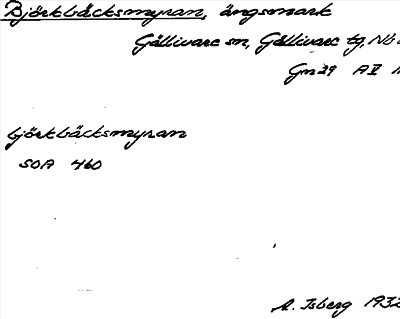 Björkbäcksmyran, ängsmark
Gällivare sn, Gällivare tg, Nb
Gm 39 A V
björkbäcksmyran
SOA 460
A. Isberg 1932